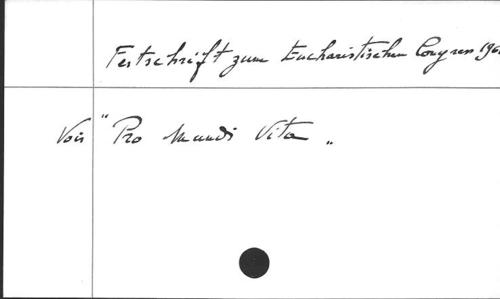 Festschrift zum Eucharistischen Congress 
Voir " Pro Mundi Vita "